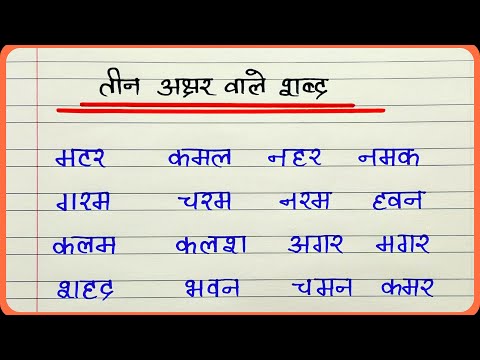 तीन अक्षर वाले शब्द
मटर कमल नहर नमक
गरम चरम नरम हवन
कलम कलश अगर मगर
शहद भवन चमन कमर